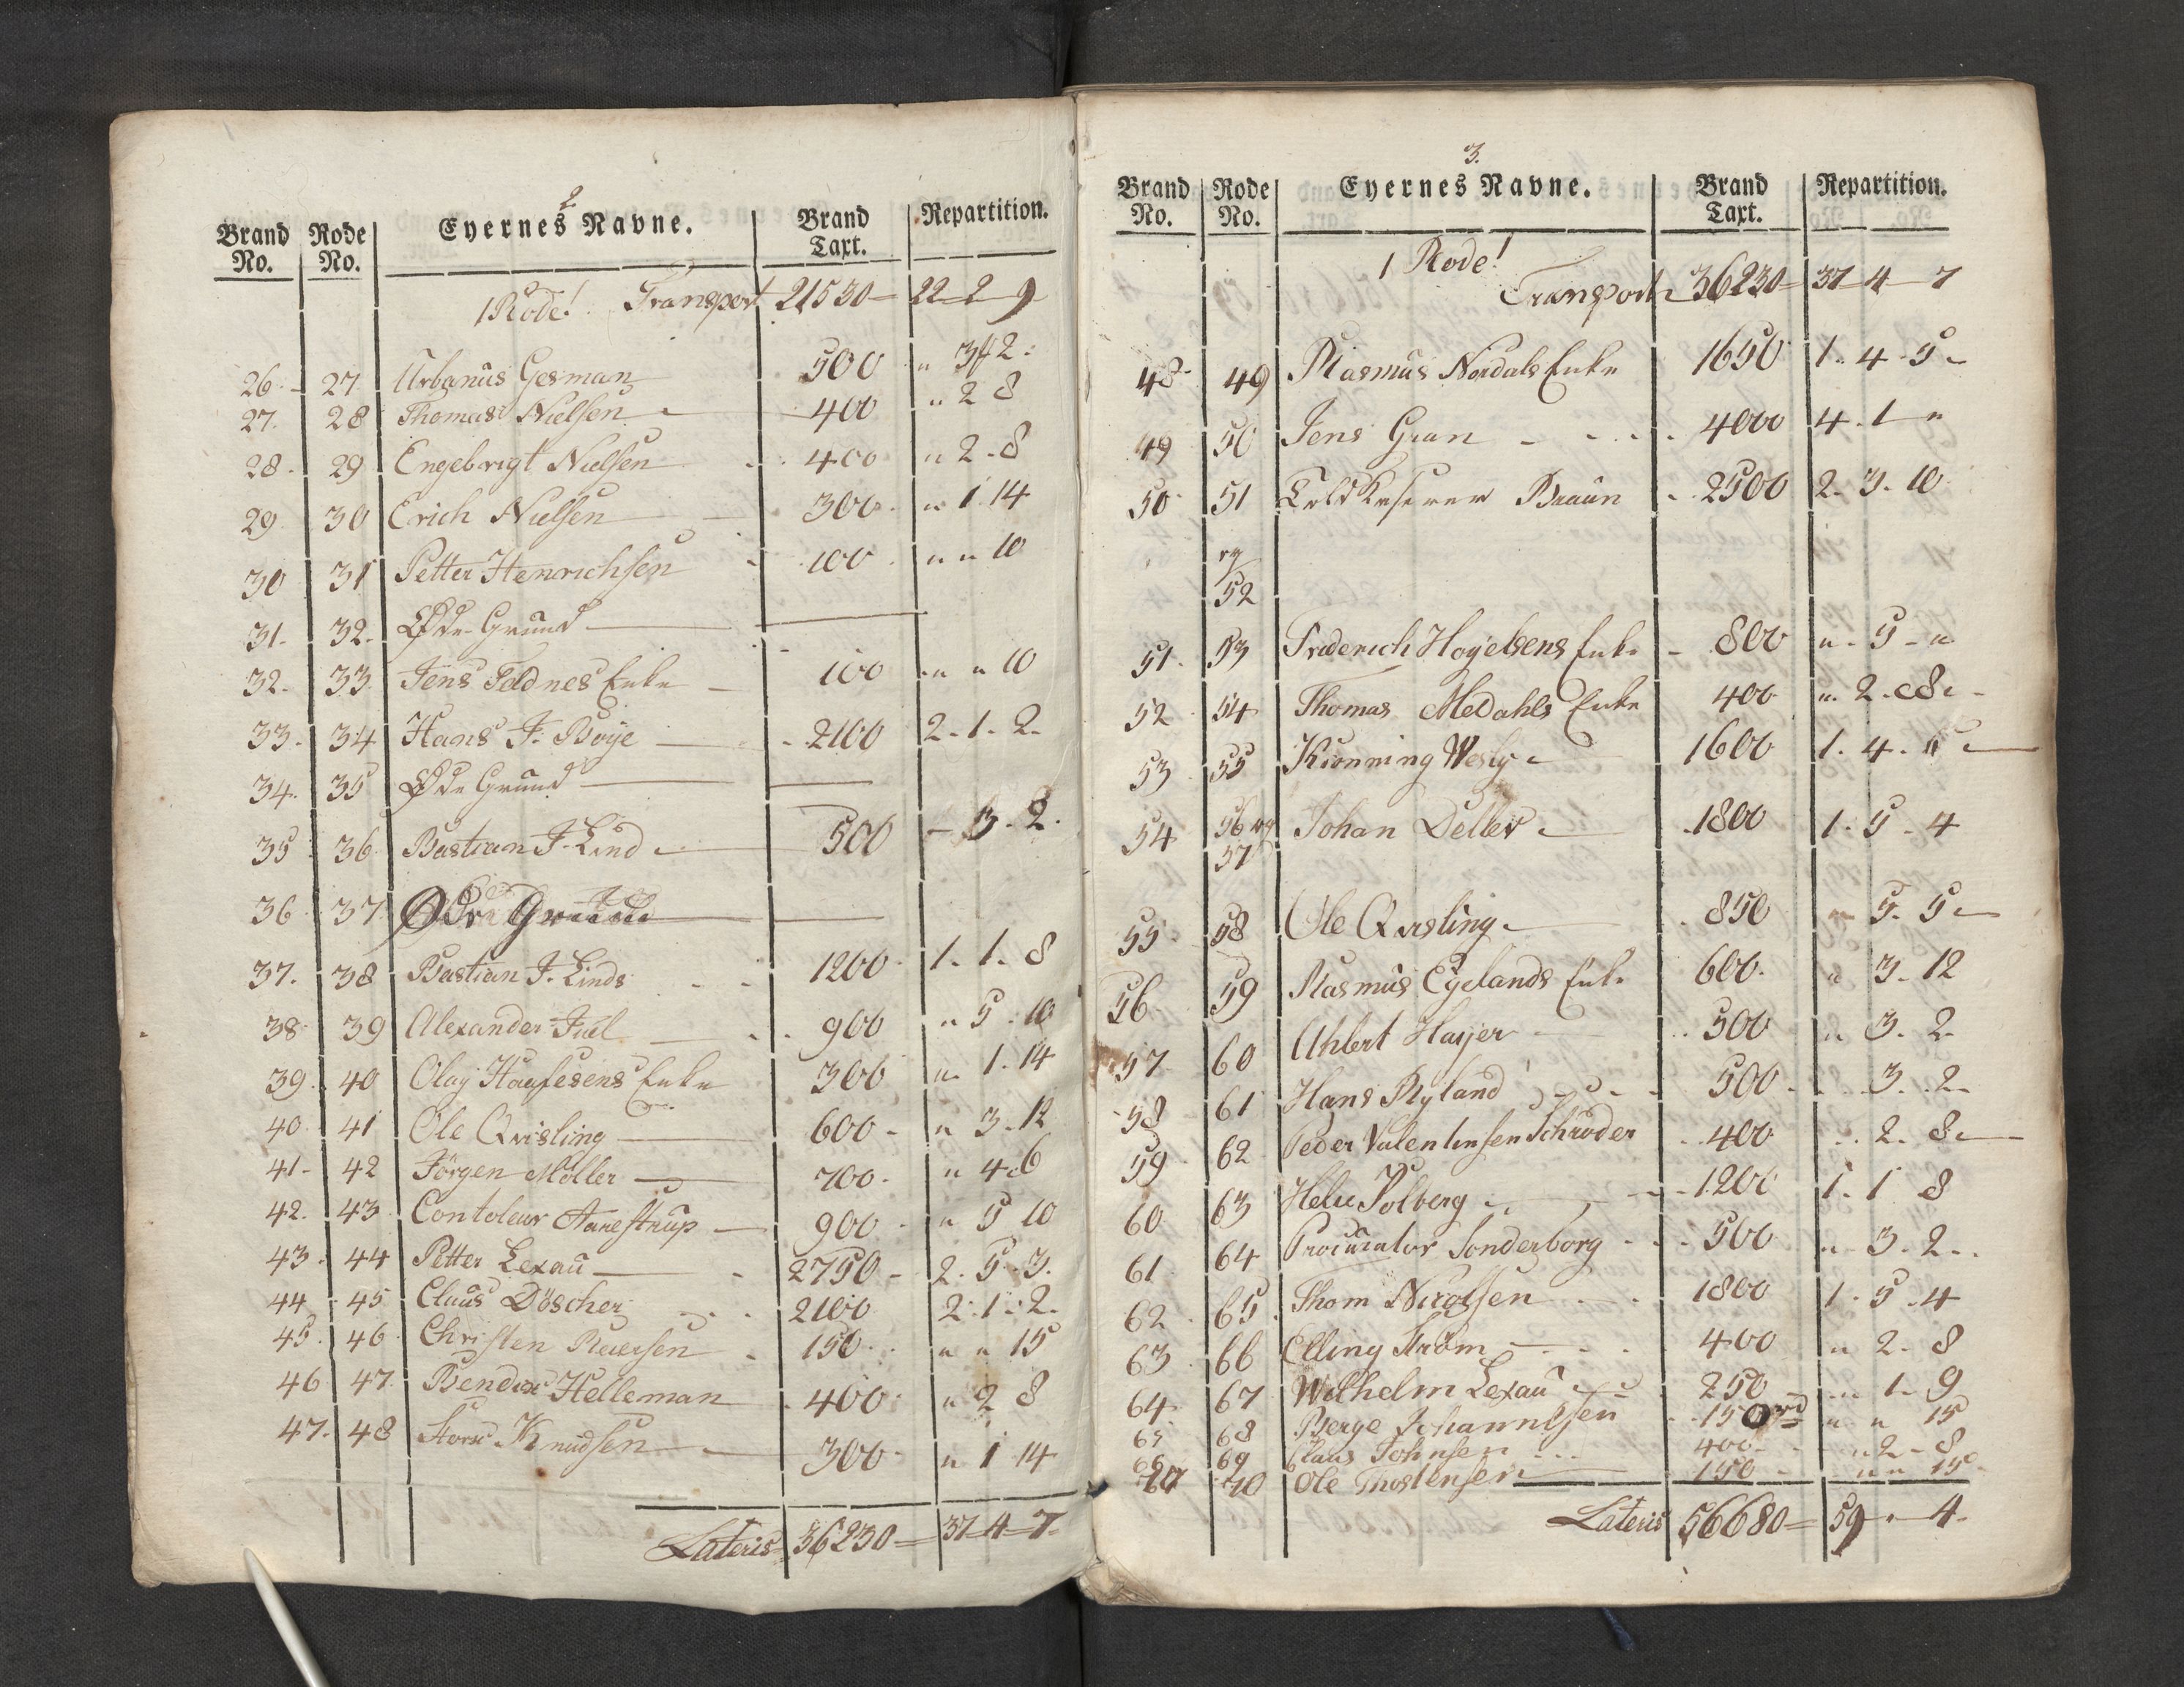 2.
Brand No. Rode No. Eyernes Navne. Brand Taxt. Repartition.
1 Rode! Transport 21530 22 2 9
26. 27 Urbanus Gesman 500 " 3 2.
27. 28 Thomas Nielsen 400 " 2 8
28. 29 Engebrigt Nielsen 400 " 2. 8
29 30 Erich Nielsen 300 " 1. 14
30 31 Petter Henrichsen 100 " " 10
31. 32. Øde Grund
32. 33 Jens Feldnes Enke 100 " " 10
33. 34 Hans F. Boye 2100 2. 1. 2.
34. 35 Øde Grund
35 36 Bastian F. Lind 500 - 3. 2.
36 37 Øde Grund
37. 38 Bastian F. Linds 1200 1. 1. 8
38 39 Alexander Juel 900 " 5. 10
39. 40 Olay Enke 300 " 1. 14
40. 41 Ole Qvisling 600 " 3. 12
41. 42 Jörgen Möller 700 " 4. 6
42. 43 Contoleur Aarestrup 900 " 5 10
43. 44 Petter Lexau 2750 2. 5. 3.
44 45 Claus Döscher 2100 2. 1. 2.
45. 46 Christen 150 " " 15
46 47 Bendix Helleman 400 " 2 8
47. 48 Knudsen 300 " 1 14
Lateris 36230 37 4 7.
3.
Brand No. Rode No. Eyernes Navne. Brand Taxt. Repartition.
1 Rode!
Transport 36230 37 4 7
48 49 Rasmus Nordals Enke 1650 1. 4. 5
49 50 Jens Gran 4000 4. 1 "
50 51 Braun 2500 2. 3. 10
og
52
51. 53 Friderich Enke 800 " 5 "
52 54 Thomas Medahls Enke 400 " 2. 8
53 55 Kionning Wesly 1600 1. 4. "
54 56 og Johan Deller 1800 1. 5. 4
57
55 58 Ole Qvisling 850 " 5. 5
56. 59 Rasmus Eyelands Enke 600 " 3. 12
57 60 Ahlert Hayer 500 " 3. 2
58 61 Hans Ryland 500 3. 2
59 62 Peder Valentinsen Schröder 400 2. 8
60 63 Solberg 1200 1. 1 8
61 64 Procurator Sonderborg 500 " 3. 2
62 65 Thom Nicolsen 1800 1. 5. 4
63 66 Elling Ström 400 " 2. 8
64 67 Wilhelm Lexau 250 " 1. 9
65 68 Berge Johannesen 150 rd " " 15
66 69 Claus Johnsen 400 " 2. 8
67 70 Ole Thostensen 150 " " 15
Lateris 56680 59 " 4